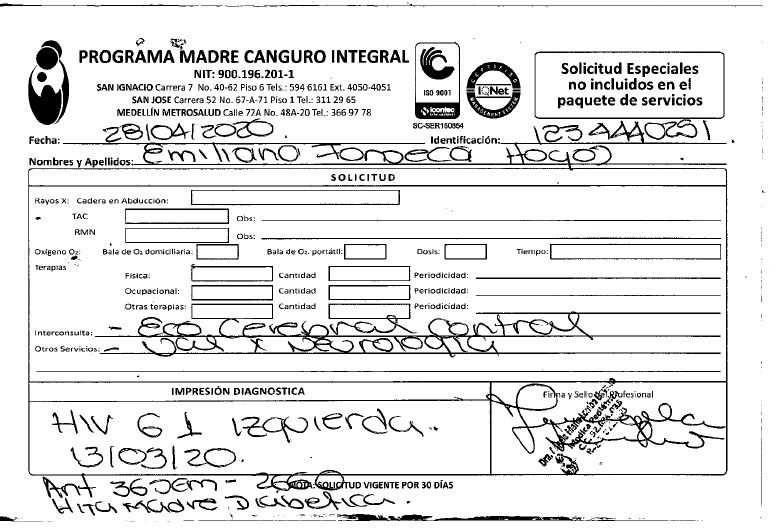 PROGRAMA MADRE CANGURO INTEGRAL
NIT: 900.196.201-1
SAN IGNACIO Carrera 7 No. 40-62 Piso 6 Tels.: 594 6161 Ext. 4050-4051
SAN JOSE Carrera 52 No. 67-A-71 Piso 1 Tel.: 311 29 65
MEDELLÍN METROSALUD Calle 72A No. 48A-20 Tel.: 366 97 78
ISO 9001
icontec
SC-SER150864
CERTIFIED
IQNet
MANAGEMENT SYSTEM
Solicitud Especiales
no incluidos en el
paquete de servicios
Fecha: 28/04/2020. Identificación: 1234440251
Nombres y Apellidos: Emiliano Fonseca Hoyos
SOLICITUD
Rayos X: Cadera en Abducción:
TAC Obs:
RMN Obs:
Oxígeno O2: Bala de O2 domiciliaria: Bala de O2. portátil: Dosis: Tiempo:
Terapias
Física: Cantidad Periodicidad:
Ocupacional: Cantidad Periodicidad:
Otras terapias: Cantidad Periodicidad:
Interconsulta: - Eco Cerebral Control
Otros Servicios: - Val x Neurología
IMPRESIÓN DIAGNOSTICA
Firma y Sello del Profesional
HIV G I Izquierda.
13/03/20.
Ant 36 Sem -
NOTA: SOLICITUD VIGENTE POR 30 DÍAS
Hito Madre Diabetica.